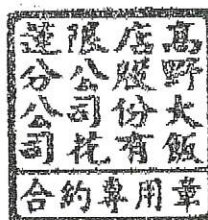 高野大飯
店股份有
限公司花
蓮分公司
合約專用章